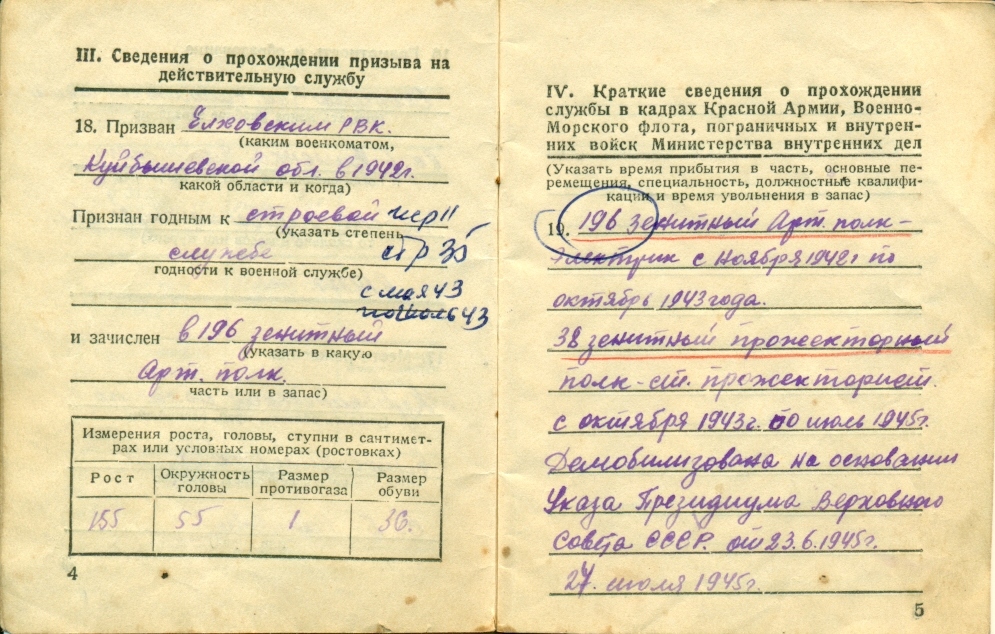 III. Сведения о прохождении призыва на
действительную службу
18. Призван Елховским РВК.
(каким военкоматом,
Куйбышевской обл. в 1942г.
какой области и когда)
Признан годным к строевой
(указать степень
службе
годности к военной службе)
с мая 43
по июль 43
и зачислен в 196 зенитный
(указать в какую
Арт. полк.
часть или в запас)
Измерения роста, головы, ступни в сантимет-
рах или условных номерах (ростовках)
Рост Окружность головы Размер противогаза Размер обуви
155 55 1 36.
4
IV. Краткие сведения о прохождении
службы в кадрах Красной Армии, Военно-
Морского флота, пограничных и внутрен-
них войск Министерства внутренних дел
(Указать время прибытия в часть, основные пе-
ремещения, специальность, должностные квалифи-
кации и время увольнения в запас)
19. 196 зенитный Арт. полк -
электрик с ноября 1942г по
октябрь 1943 года.
38 зенитный прожекторный
полк - ст. прожекторист.
с октября 1943г. по июль 1945г.
Демобилизована на основании
Указа Президиума Верховного
Совета СССР. от 23.6.1945г.
27. июля 1945г.
5